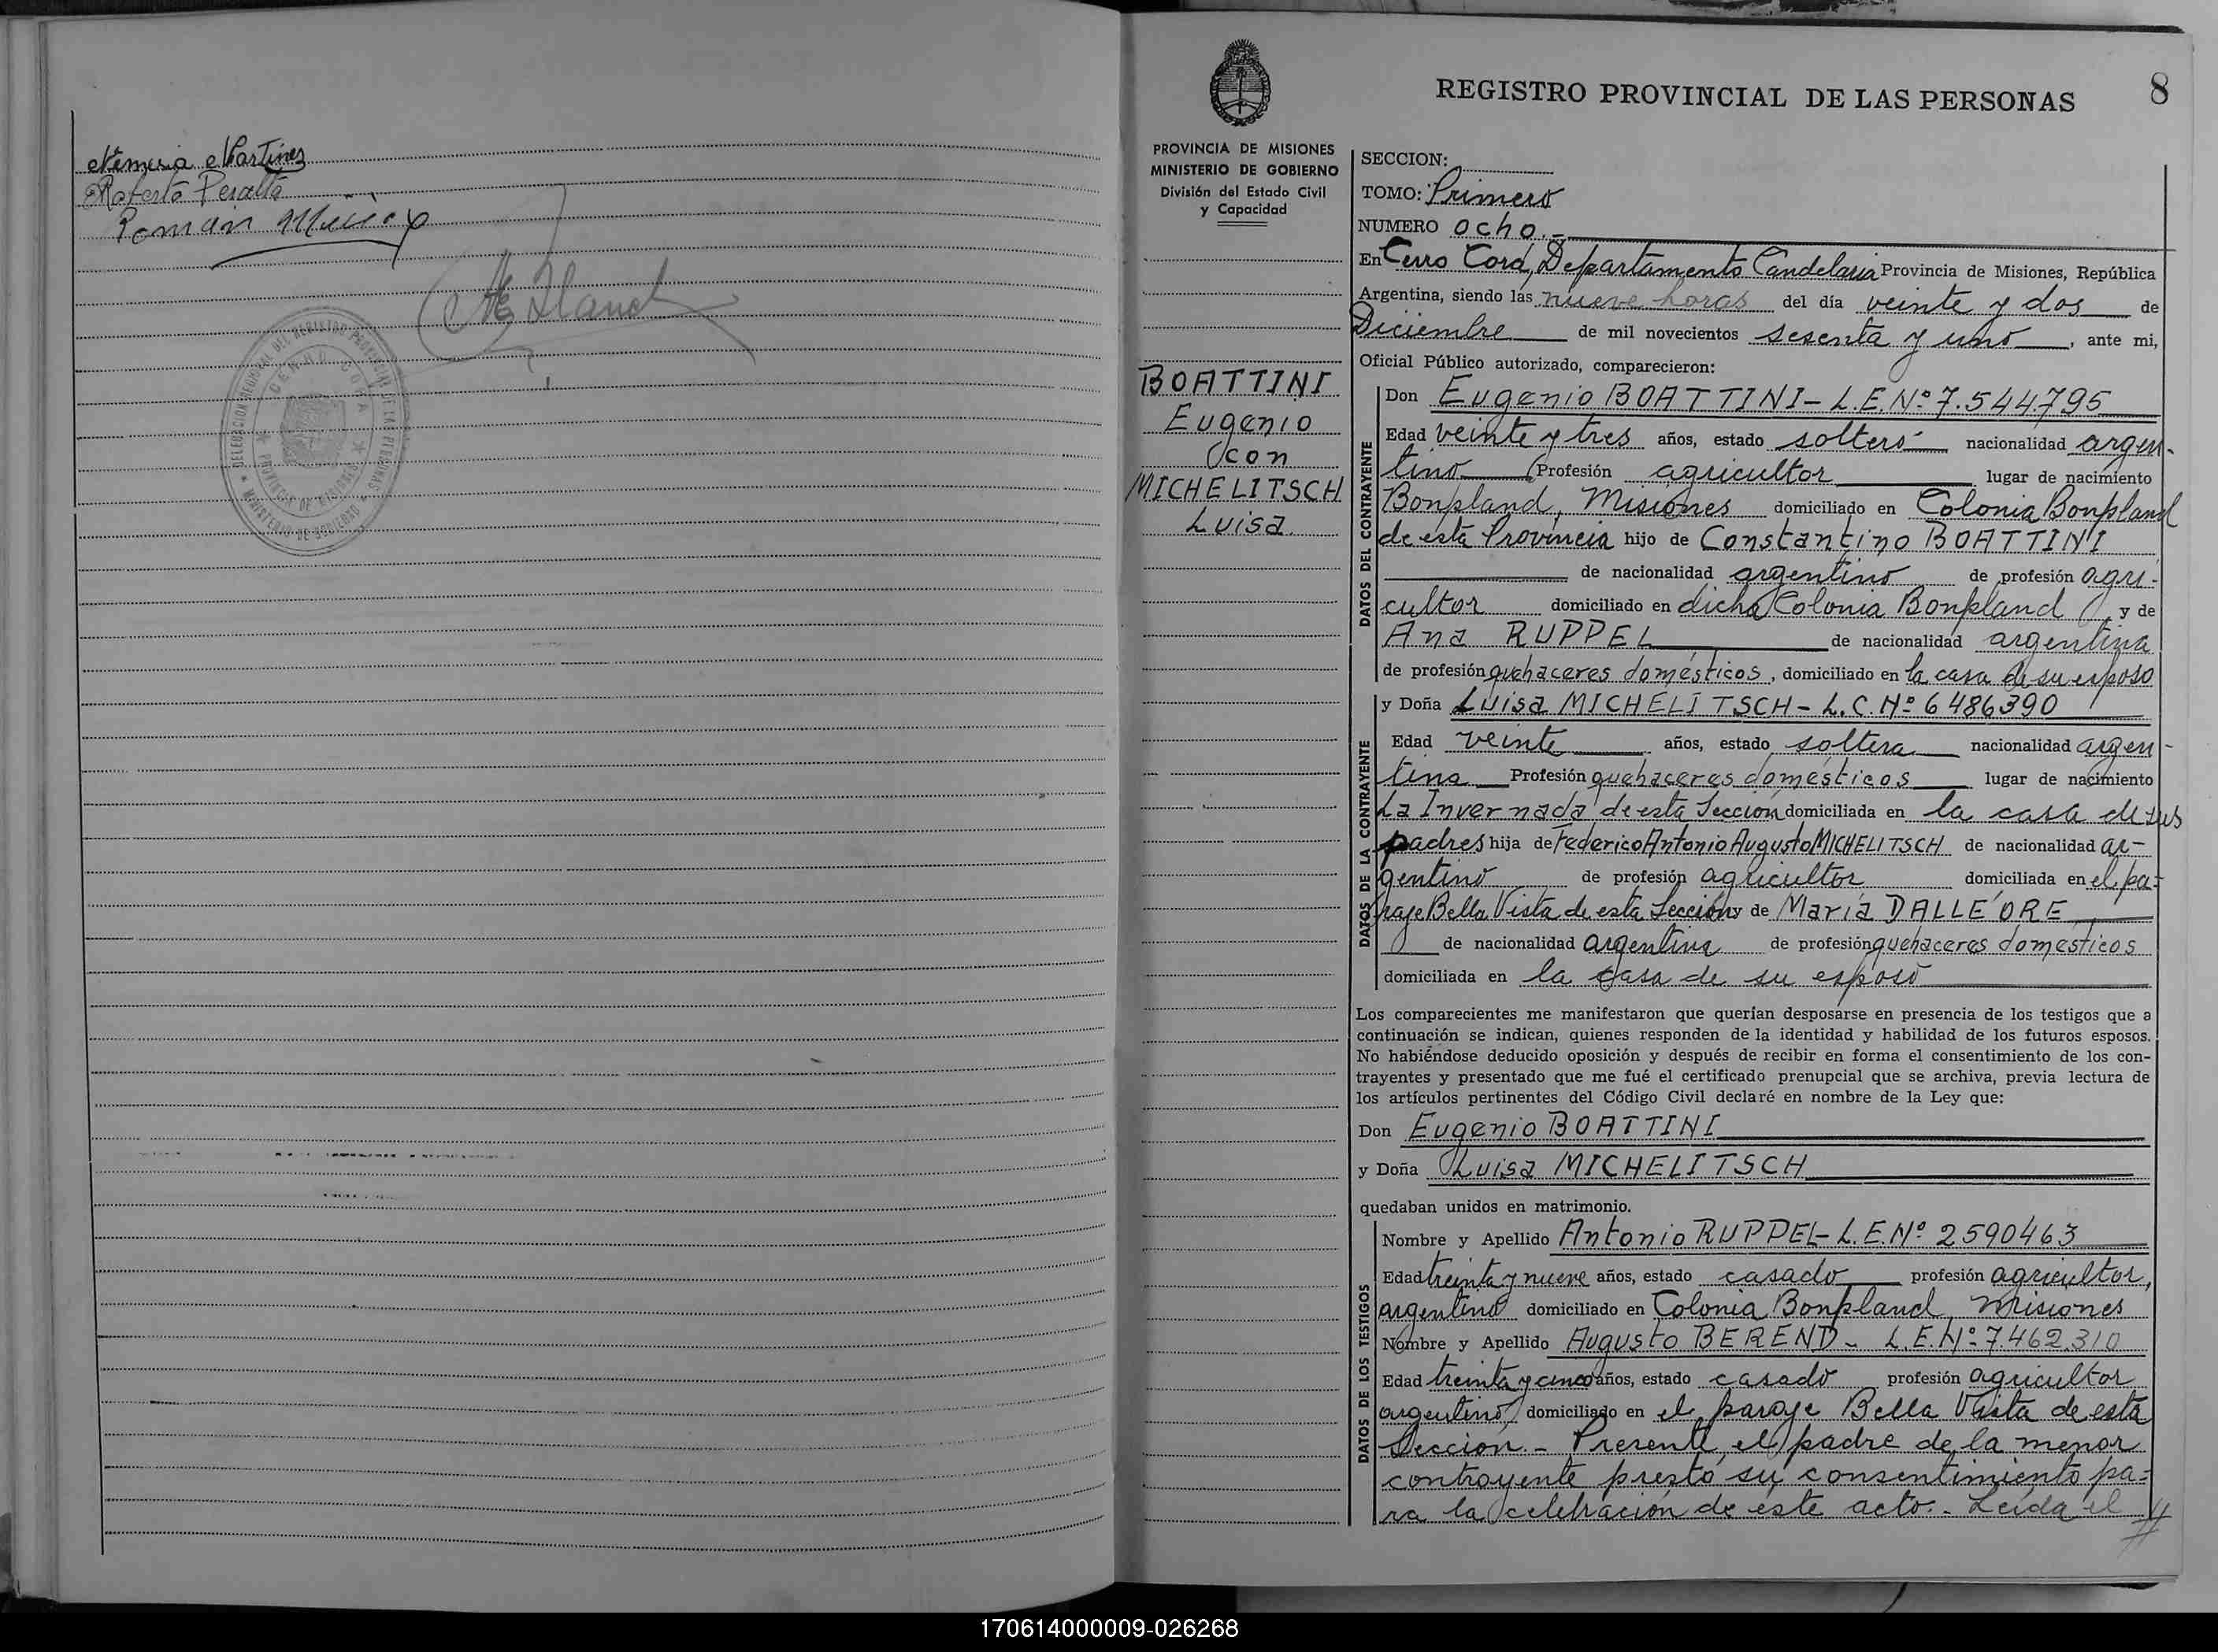 Nemesia Martinez
Roberto Peralta
Roman
DELEGACION REGIONAL DEL REGISTRO PROVINCIAL DE LAS PERSONAS
CERRO CORA
PROVINCIA DE MISIONES
MINISTERIO DE GOBIERNO
8
REGISTRO PROVINCIAL DE LAS PERSONAS
PROVINCIA DE MISIONES
MINISTERIO DE GOBIERNO
División del Estado Civil
y Capacidad
BOATTINI
Eugenio
con
MICHELITSCH
Luisa.
SECCION:
TOMO: Primero
NUMERO ocho.-
En Cerro Corá, Departamento Candelaria Provincia de Misiones, República
Argentina, siendo las nueve horas del día veinte y dos de
Diciembre de mil novecientos sesenta y uno, ante mi,
Oficial Público autorizado, comparecieron:
DATOS DEL CONTRAYENTE
Don Eugenio BOATTINI - L.E. Nº 7.544.795
Edad veinte y tres años, estado soltero nacionalidad argen-
tino Profesión agricultor lugar de nacimiento
Bonpland, Misiones domiciliado en Colonia Bonpland
de esta Provincia hijo de Constantino BOATTINI
de nacionalidad argentino de profesión agri-
cultor domiciliado en dicha Colonia Bonpland, y de
Ana RUPPEL de nacionalidad argentina
de profesión quehaceres domésticos, domiciliado en la casa de su esposo
DATOS DE LA CONTRAYENTE
y Doña Luisa MICHELITSCH - L.C. Nº 6486390
Edad veinte años, estado soltera nacionalidad argen-
tina Profesión quehaceres domésticos lugar de nacimiento
La Invernada de esta Sección domiciliada en la casa de sus
padres hija de Federico Antonio Augusto MICHELITSCH de nacionalidad ar-
gentino de profesión agricultor domiciliada en el pa-
raje Bella Vista de esta Sección y de María DALLE'ORE
de nacionalidad argentina de profesión quehaceres domésticos
domiciliada en la casa de su esposo
Los comparecientes me manifestaron que querían desposarse en presencia de los testigos que a
continuación se indican, quienes responden de la identidad y habilidad de los futuros esposos.
No habiéndose deducido oposición y después de recibir en forma el consentimiento de los con-
trayentes y presentado que me fué el certificado prenupcial que se archiva, previa lectura de
los artículos pertinentes del Código Civil declaré en nombre de la Ley que:
Don Eugenio BOATTINI
y Doña Luisa MICHELITSCH
quedaban unidos en matrimonio.
DATOS DE LOS TESTIGOS
Nombre y Apellido Antonio RUPPEL - L.E. Nº 2590463
Edad treinta y nueve años, estado casado profesión agricultor,
argentino domiciliado en Colonia Bonpland, Misiones
Nombre y Apellido Augusto BEREND - L.E. Nº 7.462.310
Edad treinta y cinco años, estado casado profesión agricultor
argentino, domiciliado en el paraje Bella Vista de esta
Sección.- Presente el padre de la menor
contrayente prestó su consentimiento pa-
ra la celebración de este acto.- Leída el //
170614000009-026268